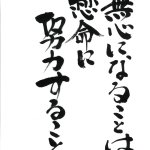 無心になることは
懸命に
努力すること